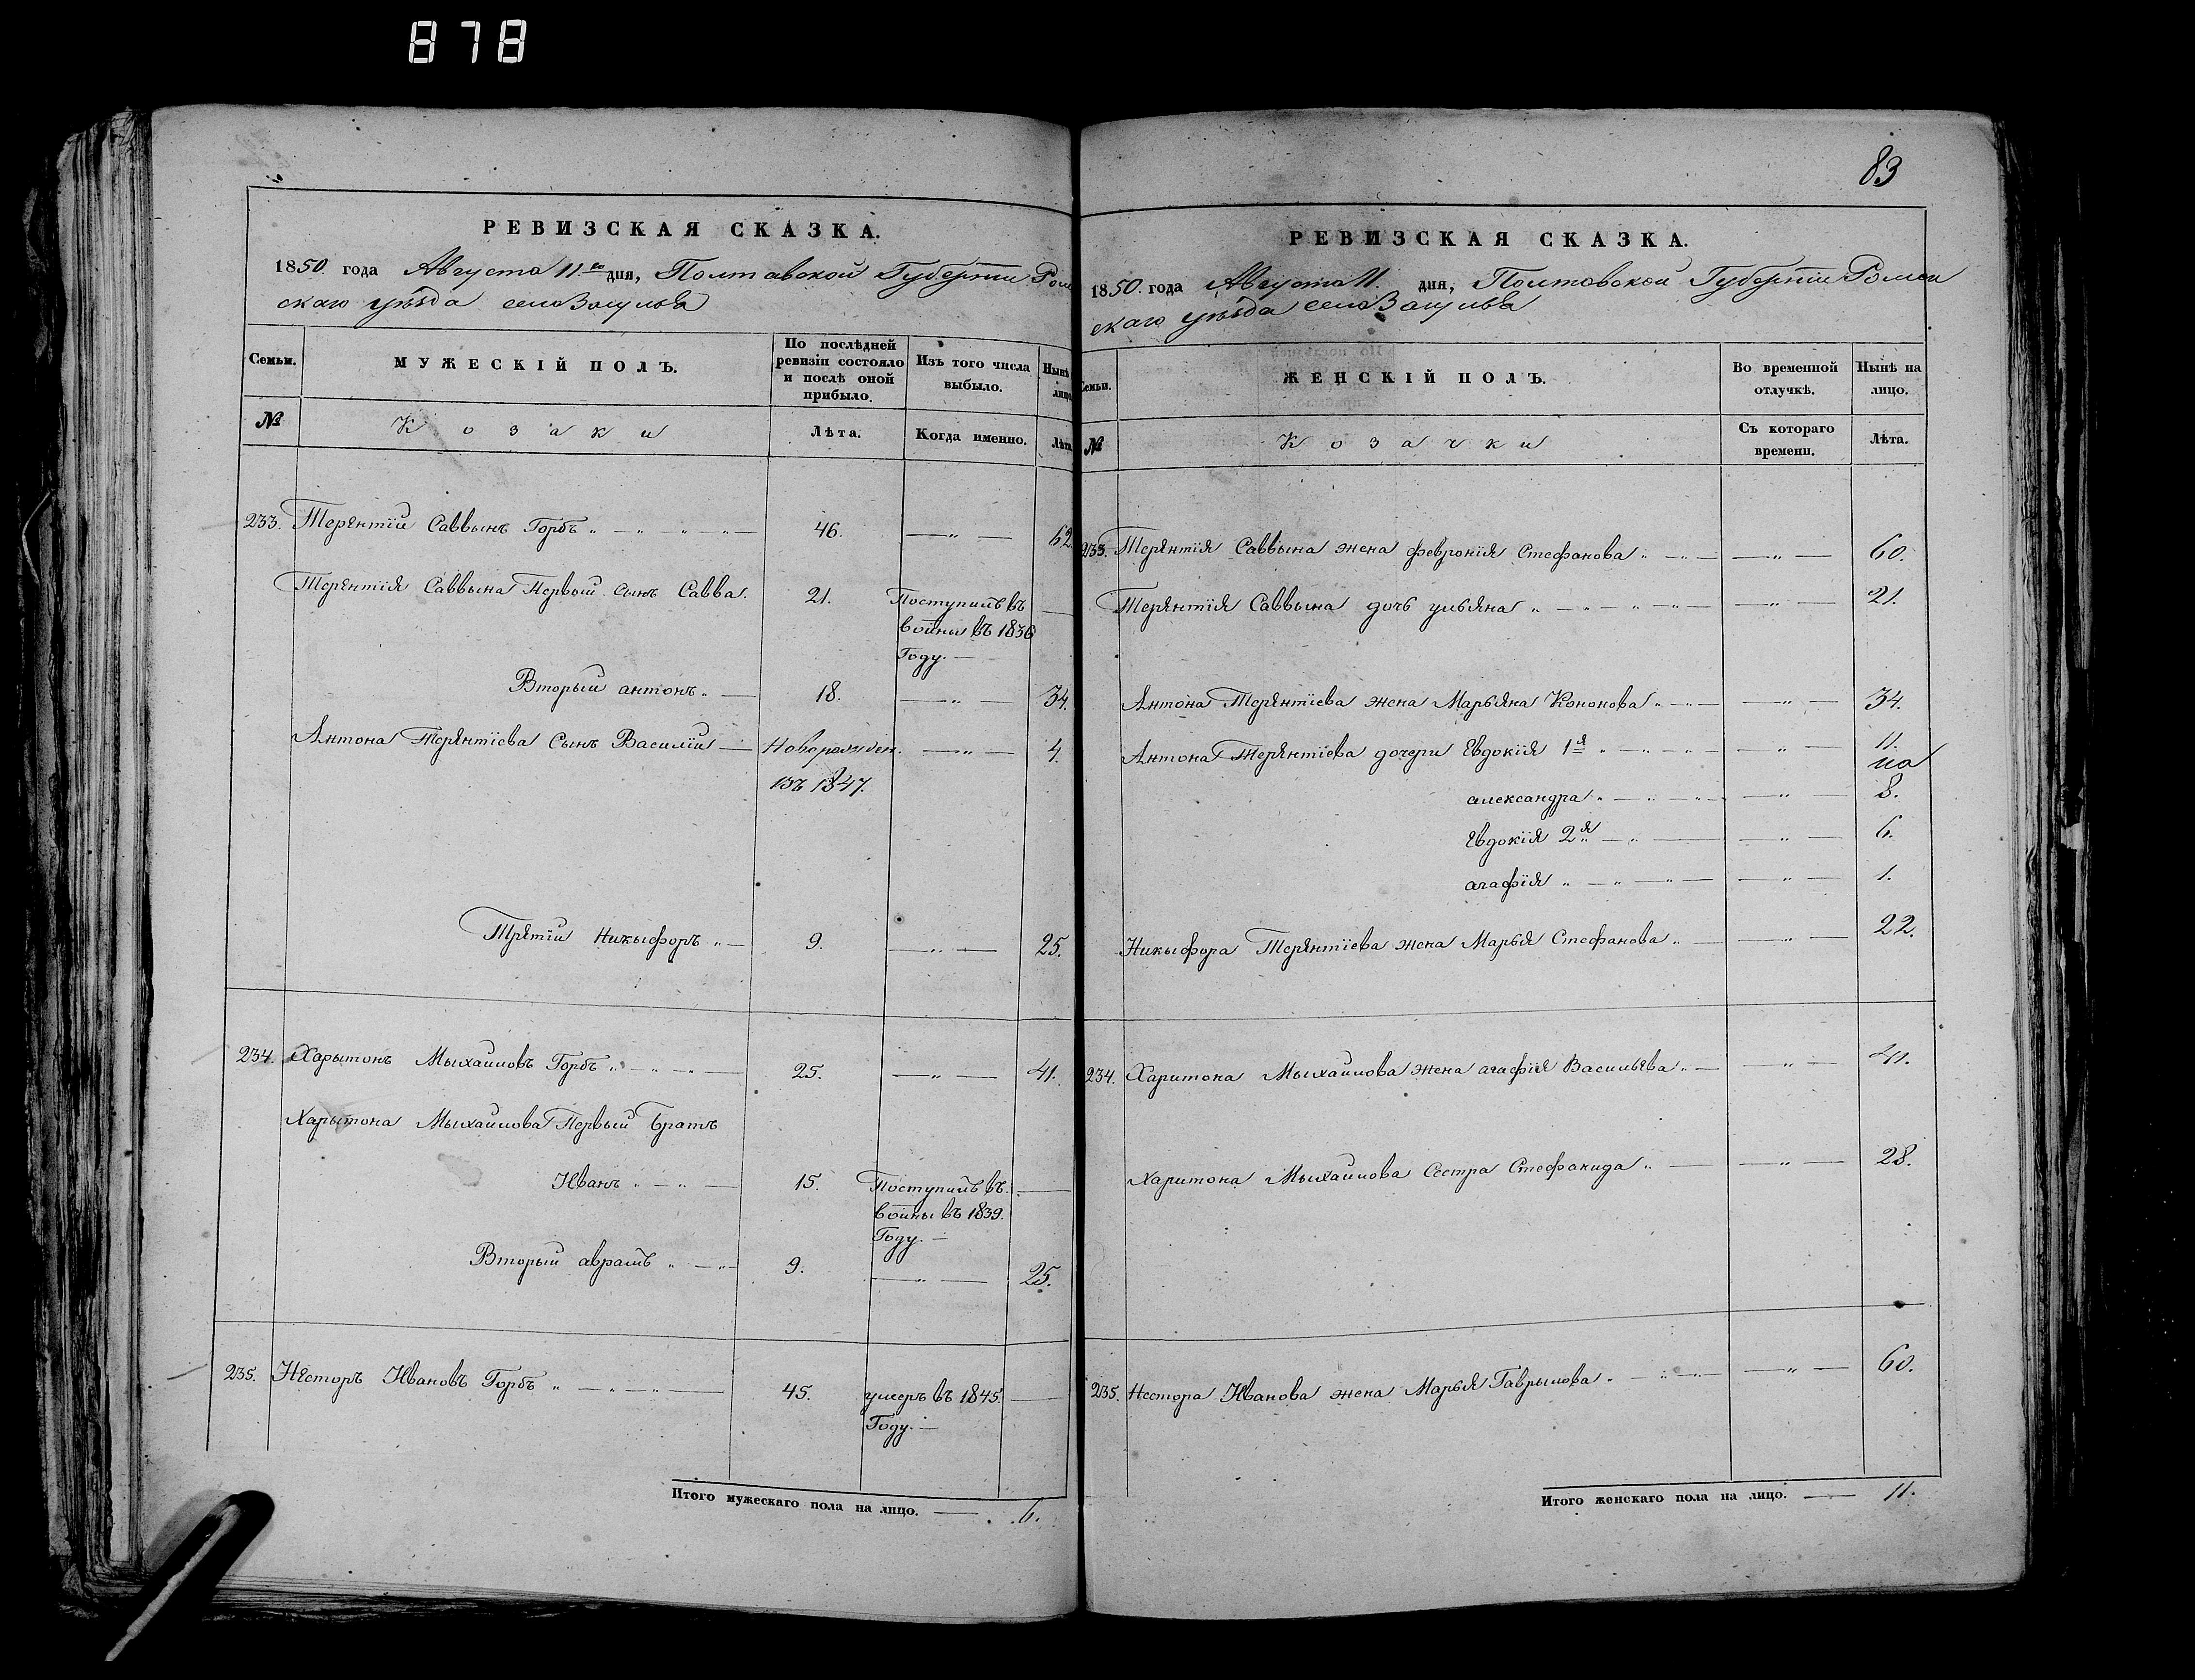 878
РЕВИЗСКАЯ СКАЗКА.
1850 года Августа 11го дня, Полтавской Губерніи Ромен
скаго уѣзда села Засулья
Семьи.
МУЖЕСКІЙ ПОЛЪ.
По послѣдней ревизіи состояло и послѣ оной прибыло.
Изъ того числа выбыло.
Нынѣ лицо
№
Козаки
Лѣта.
Когда именно.
Лѣта
233. Терентій Саввынъ Горбъ 46. 62
Терентія Саввына Первый сынъ Савва. 21. Поступилъ въ
войны въ 1836
Году.
Вторый антонъ 18. 34.
Антона Терентіева Сынъ Василій Новорожден. 4.
въ 1847.
Третій Никыфоръ 9. 25.
234. Харытонъ Мыхайловъ Горбъ 25. 41.
Харытона Мыхайлова Первый Братъ
Иванъ 15. Поступилъ въ
войны въ 1839.
Году.
Вторый аврамъ 9. 25.
235. Несторъ Ивановъ Горбъ 45. умеръ въ 1845.
Году.
Итого мужескаго пола на лицо. 6.
83
РЕВИЗСКАЯ СКАЗКА.
1850 года Августа 11. дня, Полтавской Губерніи Ромен
скаго уѣзда села Засулья
Семьи.
ЖЕНСКІЙ ПОЛЪ.
Во временной отлучкѣ.
Нынѣ на лицо.
№
Козачки
Съ котораго времени.
Лѣта.
233. Терентія Саввына жена февронія Стефанова 60.
Терентія Саввына дочь ульяна 21.
Антона Терентіева жена Марьяна Кононова 34.
Антона Терентіева дочери Евдокія 1я 11.
александра 8.
Евдокія 2я 6.
агафія 1.
Никыфора Терентіева жена Марья Стефанова 22.
234. Харитона Мыхайлова жена агафія Васильева 41.
Харитона Мыхайлова Сестра Стефанида 28.
235. Нестора Иванова жена Марья Гаврылова 60.
Итого женскаго пола на лицо. 11.